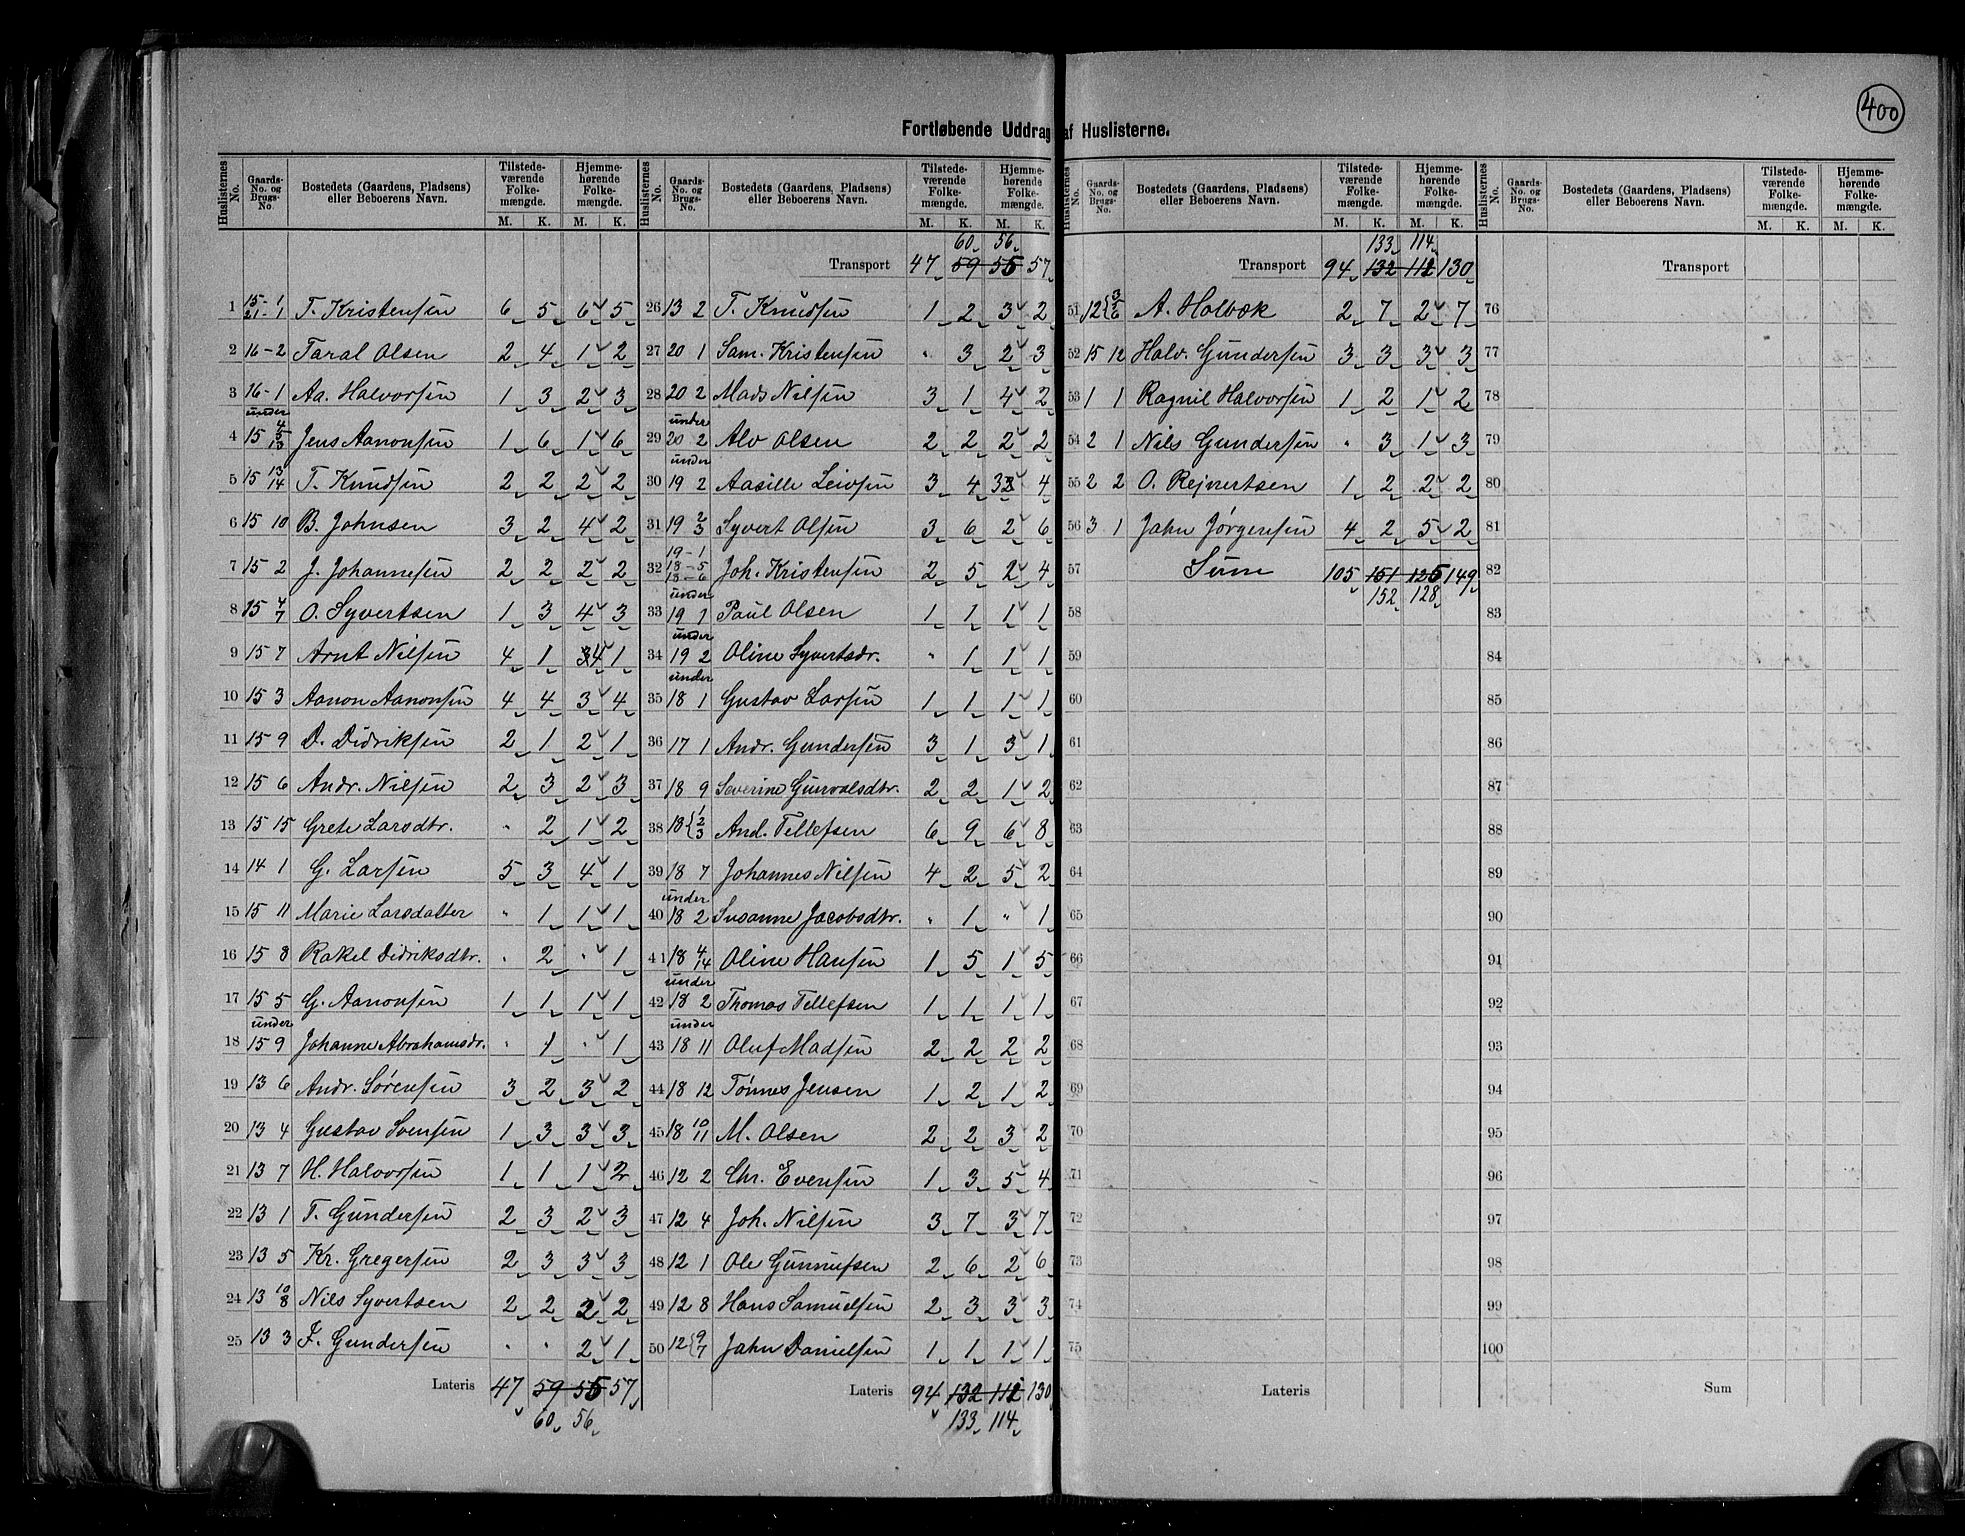 400
Fortløbende Uddrag af Huslisterne.
Huslisternes No. | Gaards-No. og Brugs-No. | Bostedets (Gaardens, Pladsens) eller Beboerens Navn. | Tilstedeværende Folkemængde. M. K. | Hjemmehørende Folkemængde. M. K.
1 15-1 21-1 T. Kristensen 6 5 6 5
2 16-2 Taral Olsen 2 4 1 2
3 16-1 Aa. Halvorsen 1 3 2 3
4 under 15 4 5 13 Jens Aanonsen 1 6 1 6
5 15 13 14 T. Knudsen 2 2 2 2
6 15 10 B. Johnsen 3 2 4 2
7 15 2 J. Johannesen 2 2 2 2
8 15 4 7 O. Syvertsen 1 3 4 3
9 15 7 Arnt Nilsen 4 1 4 1
10 15 3 Aanon Aanonsen 4 4 3 4
11 15 9 D. Didriksen 2 1 2 1
12 15 6 Andr. Nilsen 2 3 2 3
13 15 15 Grete Larsdtr. " 2 1 2
14 14 1 G. Larsen 5 3 4 1
15 15 11 Marie Larsdatter " 1 1 1
16 15 8 Rakel Didriksdtr. " 2 " 1
17 15 5 G. Aanonsen 1 1 1 1
18 under 15 9 Johanne Abrahamsdr. " 1 " 1
19 13 6 Andr. Sørensen 3 2 3 2
20 13 4 Gustav Svensen 1 3 3 3
21 13 7 H. Halvorsen 1 1 1 2
22 13 1 T. Gundersen 2 3 2 3
23 13 5 Kr. Gregersen 2 3 3 3
24 13 10 8 Nils Syvertsen 2 2 2 2
25 13 3 F. Gundersen " " 2 1
Lateris 47 59 55 57
60 56
60 56
Transport 47 59 55 57
26 13 2 T. Knudsen 1 2 3 2
27 20 1 Sam. Kristensen " 3 2 3
28 20 2 Mads Nilsen 3 1 4 2
29 under 20 2 Alv Olsen 2 2 2 2
30 under 19 2 Aasille Leivsen 3 4 3 4
31 19 2 3 Syvert Olsen 3 6 2 6
32 19-1 18-5 18-6 Joh. Kristensen 2 5 2 4
33 under 19 1 Paul Olsen 1 1 1 1
34 under 19 2 Oline Syvertsdr. " 1 1 1
35 under 18 1 Gustav Larsen 1 1 1 1
36 17 1 Andr. Gundersen 3 1 3 1
37 18 9 Severine Gunvalsdtr. 2 2 1 2
38 18 1 2 3 And. Tellefsen 6 9 6 8
39 18 7 Johannes Nilsen 4 2 5 2
40 under 18 2 Susanne Jacobsdtr. " 1 " 1
41 18 4 14 Oline Hansen 1 5 1 5
42 under 18 2 Thomas Tellefsen 1 1 1 1
43 under 18 11 Oluf Madsen 2 2 2 2
44 18 12 Tønnes Jensen 1 2 1 2
45 18 10 11 M. Olsen 2 2 3 2
46 12 2 Chr. Evensen 1 3 5 4
47 12 4 Joh. Nilsen 3 7 3 7
48 12 1 Ole Gunnufsen 2 6 2 6
49 12 8 Hans Samuelsen 2 3 3 3
50 12 9 7 Jahn Danielsen 1 1 1 1
Lateris 94 132 112 130
133 114
133 114
Transport 94 132 112 130
51 12 3 5 6 A. Holbæk 2 7 2 7
52 15 12 Halv. Gundersen 3 3 3 3
53 1 1 Ragnil Halvorsen 1 2 1 2
54 2 1 Nils Gundersen " 3 1 3
55 2 2 O. Rejnertsen 1 2 2 2
56 3 1 Jahn Jørgensen 4 2 5 2
57 Sum 105 151 125 149
152 128
58
59
60
61
62
63
64
65
66
67
68
69
70
71
72
73
74
75
Lateris
Transport
76
77
78
79
80
81
82
83
84
85
86
87
88
89
90
91
92
93
94
95
96
97
98
99
100
Sum